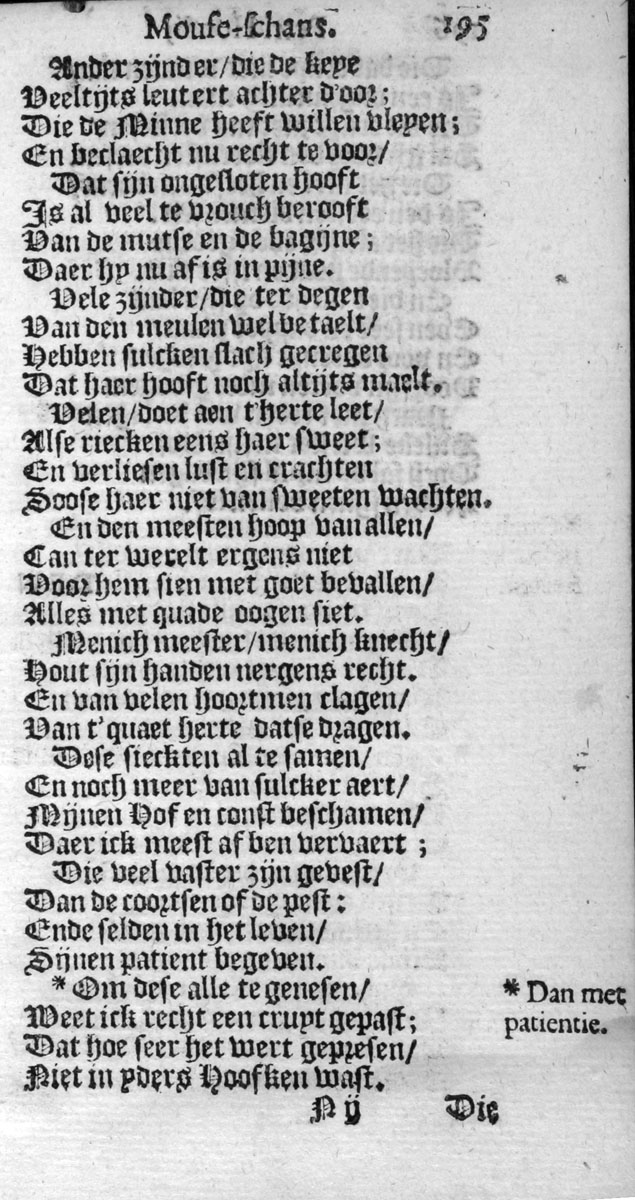 Mouse-schans. 195
Ander zijnder/die de keye
Veeltijts leutert achter d'oor;
Die de Minne heeft willen vleyen;
En beclaecht nu recht te voor/
Dat sijn ongesloten hooft
Is al veel te vrouch berooft
Van de mutse en de bagijne;
Daer hy nu af is in pijne.
Vele zijnder/die ter degen
Van den meulen wel betaelt/
Hebben sulcken slach gecregen
Dat haer hooft noch altijts maelt.
Velen/doet aen t'herte leet/
Alse riecken eens haer sweet;
En verliesen lust en crachten
Soose haer niet van sweeten wachten.
En den meesten hoop van allen/
Can ter werelt ergens niet
Voor hem sien met goet bevallen/
Alles met quade oogen siet.
Menich meester/menich knecht/
Hout sijn handen nergens recht.
En van velen hoortmen clagen/
Van t'quaet herte datse dragen.
Dese sieckten al te samen/
En noch meer van sulcker aert/
Mijnen Hof en const beschamen/
Daer ick meest af ben vervaert;
Die veel vaster zijn gevest/
Dan de coortsen of de pest:
Ende selden in het leven/
Sijnen patient begeven.
* Om dese alle te genesen/
Weet ick recht een cruyt gepast;
Dat hoe seer het wert gepresen/
Niet in yders Hoofken wast.
* Dan met
patientie.
N ij Die